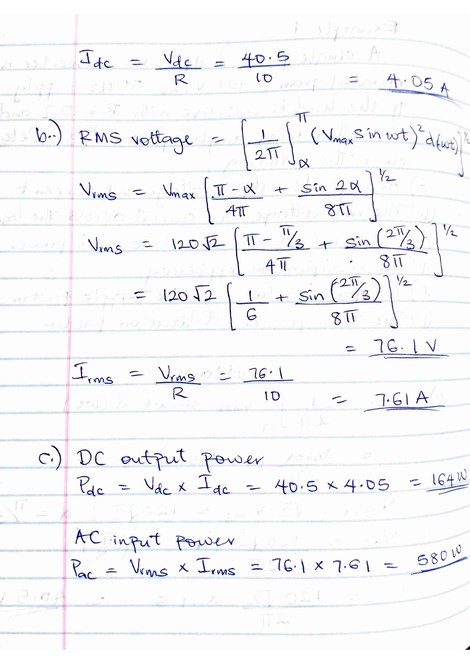 I_dc = V_dc / R = 40.5 / 10 = 4.05 A
b.) RMS voltage = [1/2π ∫_α^π (V_max sin ωt)² d(ωt)]^1/2
V_rms = V_max [π-α / 4π + sin 2α / 8π]^1/2
V_rms = 120√2 [π - π/3 / 4π + sin(2π/3) / 8π]^1/2
= 120√2 [1/6 + sin(2π/3) / 8π]^1/2
= 76.1 V
I_rms = V_rms / R = 76.1 / 10 = 7.61 A
c.) DC output power
P_dc = V_dc × I_dc = 40.5 × 4.05 = 164 W
AC input power
P_ac = V_rms × I_rms = 76.1 × 7.61 = 580 W